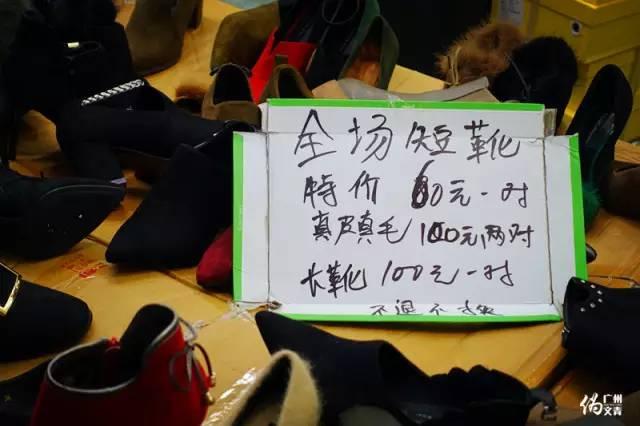 全场短靴
特价 60元一对
真皮真毛 100元两对
长靴 100元一对
不退不换
伪广州文青